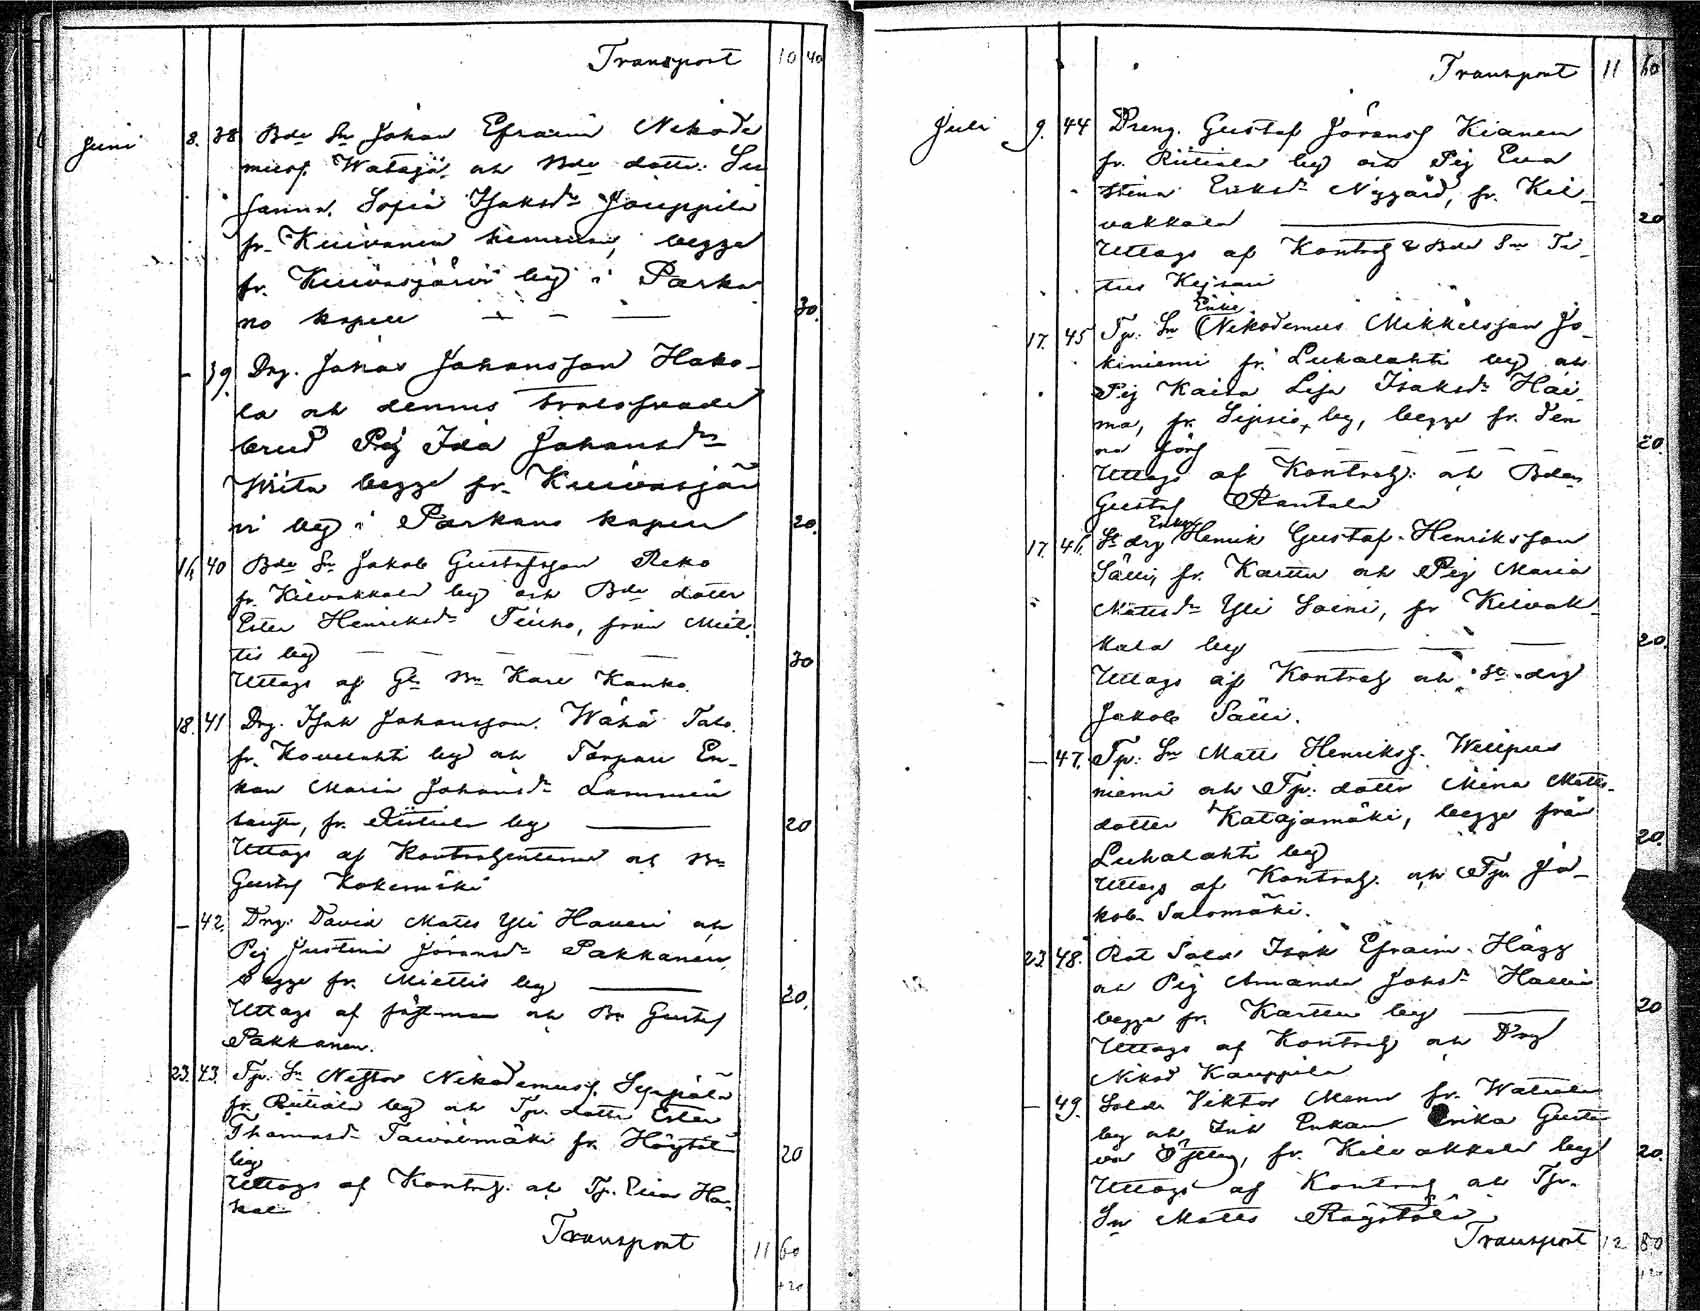 Transport 10 40
Juni 8. 38 Bde Sn Johan Efraim Nikode
musf. Watajä, och Bde dotter: Su
sanna Sofia Isaksdr Jouppila
fr. Kuivanen hemman, begge
fr. Kuivasjärvi by i Parka
no kapell — — — 30.
— 39. Drg. Johan Johansson Hako-
la och dennes trolofvade
brud Pig Ida Johansdr
begge fr. Kuivasjär
vi by i Parkano kapell 20.
16. 40 Bde Sn Jakob Gustafsson Reko
fr. Kilvakkala by och Bde dotter
Ester Henriksdr Teiko, från Miet
tis by — — — — 30
Uttogs af Karl Kauko.
18. 41 Drg. Isak Johansson Wähä Talo
fr. Kovelahti by och Torpare En-
kan Maria Johansdr Lammin
fr. Riitiala by — 20
Uttogs af Kontrahenterna och Bn
Gustaf Kokemäki
— 42. Drg. David Matts Yli Haveri och
Pig Justina Jöransdr Pakkanen
begge fr. Miettis by — 20.
Uttogs af fästman och Bn Gustaf
Pakkanen.
23. 43. Tp. Sn Nestor Nikodemusf.
fr. Riitiala by och Tp. dotter Ester
Thomasdr Taivalmäki fr. Höytölä
by 20
Uttogs af Kontrah. och Tp.
Transport 11 60
+20
Transport 11 60
Juli 9. 44 Dreng. Gustaf Jöransf Kianen
fr. Riitiala by och Pig Eva
Stina Eriksdr Nygård, fr. Kil-
vakkala — 20
Uttogs af Kontrah & Bde Sn Ti-
tus Keisari
Enkl.
17. 45 Tp. Sn Nikodemus Mikkelsson Jo-
kiniemi fr. Luhalahti by och
Pig Kaisa Lisa Isaksdr Hei-
ma, fr. Sipsiö by, begge fr. den
na förs — — — — 20
Uttogs af Kontrah. och Bden
Gustaf Rantala
Enkl.
17. 46. St drg Henrik Gustaf Henriksson
Sälli, fr. Karttu och Pig Maria
Mattsdr Yli Soini, fr Kilvak-
kala by — — — 20.
Uttogs af Kontrah och St drg
Jakob Sälli.
— 47. Tp. Sn Matts Henriksf.
niemi och Tp. dotter Mina Matts-
dotter Katajamäki, begge från
Luhalahti by 20.
Uttogs af Kontrah. och Tp. Ja-
kob Salomäki.
23 48. Rot Sold Isak Efraim Hägg
och Pig Amanda Johsdr Halli
begge fr. Karttu by — 20
Uttogs af Kontrah och Drg
Nikod Kauppila
— 49. Sold. Viktor Mann fr. Watula
by och Inh Enkan Erika Gusta
va fr. Kilvakkala by 20.
Uttogs af Kontrah och Tp.
Sn Matts Röystölä
Transport 12 80
+20